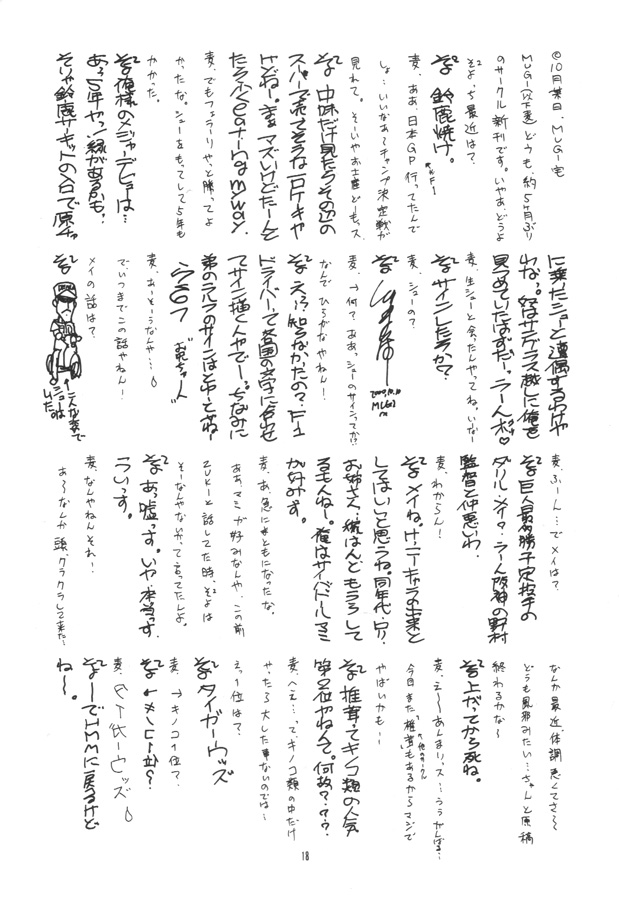 ©10月某日、MUGI宅
MUGI(以下麦)どうも、約5ヶ月ぶり
のサークル新刊です。いやぁ、どうよ
そよっち最近は？
そ² 鈴鹿焼け。
麦、ああ、日本GP行ってたんで
しょ…いいなあ〜チャンプ決定戦が
見れて。そういやお土産どーも、ス
そ² 中味だけ見たらその辺の
スーパーで売ってそうな一口ケーキや
けどねー。まぁ、マズいけどたーんと
たらふくeating my way.
麦、でもフェラーリやっと勝ってよ
かったな。シューをもってして5年も
かかった。
そ² 俺様のメジャーデビューは…
あっ5年やっ！縁があるかも。
そりゃ鈴鹿サーキットの入口で原チャ
に乗ったシューと遭遇するわけや
わな。奴はサングラス越しに俺を
見つめていたはずだ。うーん
麦、生シューと会ったんやってね。いいなー
そ² サインしたろか？
麦、シューの？
そ²
2000.10.10
MUGI
麦、→何？ああっ、シューのサインってか!?
なんで ひらがなやねん！
そ² えっ？知らなかったの？F1
ドライバーって各国の文字に合わせ
てサイン描く人やでー。ちなみに
弟のラルフのサインはえーとねー
らるふ お兄ちゃーん
麦、あーそうなんや…
で、いつまでこの話やねん！
メイの話は？
そ²
麦、ふーん…でメイは？
そ² 巨人最多勝予定投手の
ダリル・メイ？うーん阪神の野村
監督と仲悪いわ。
麦、わからん！
そ² メイね。け、ニューキャラの出来と
してはいいと思うね。同年代・ロリ・
お姉さん・桃はんどもうろして
るもんねー。俺はサイバドールマミ
が好みっす。
麦、あ、急にまともになったな。
ああ、マミが好みなんや、この前
ZUKEと話してた時、そよは
そーなんやないかって言ってたんよ。
そ² あっ嘘っす。いや、本当っす。
ういっす。
麦、なんやねんそれ！
あ〜なんか頭、クラクラして来た〜
なんか最近、体調悪くてさ〜
どうも風邪みたい…ちゃんと原稿
終わるかな〜
そ² 上がってから死ね。
麦、え〜あんまりッス…ううがんばる…
今日また「椎茸」もあるからマジで
やばいかも…
そ² 椎茸ってキノコ類の人気
第2位やねんて。何故？？？
麦、へえ…って、キノコ類の中だけ
やったら大した事ないのでは〜
えっ1位は？
そ² タイガーウッズ
麦、→キノコ1位？
麦、
そ² ーでHMMに戻るけど
ね〜。
18